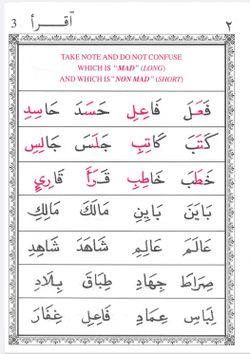 3 اَقْرأ ٢
TAKE NOTE AND DO NOT CONFUSE
WHICH IS "MAD" (LONG)
AND WHICH IS "NON MAD" (SHORT)
فَعَلَ فَاعِلِ حَسَدَ حَاسِدِ
كَتَبَ كَاتِبِ جَلَسَ جَالِسِ
خَطَبَ خَاطِبِ قَرَأَ قَارِئِ
بَايَنَ بَايِنِ مَالَكَ مَالِكِ
عَالَمَ عَالِمِ شَاهَدَ شَاهِدِ
صِرَاطَ جِهَادِ طِبَاقَ بِلَادِ
لِبَاسِ عِمَادِ فَاعِلِ غِفَارَ